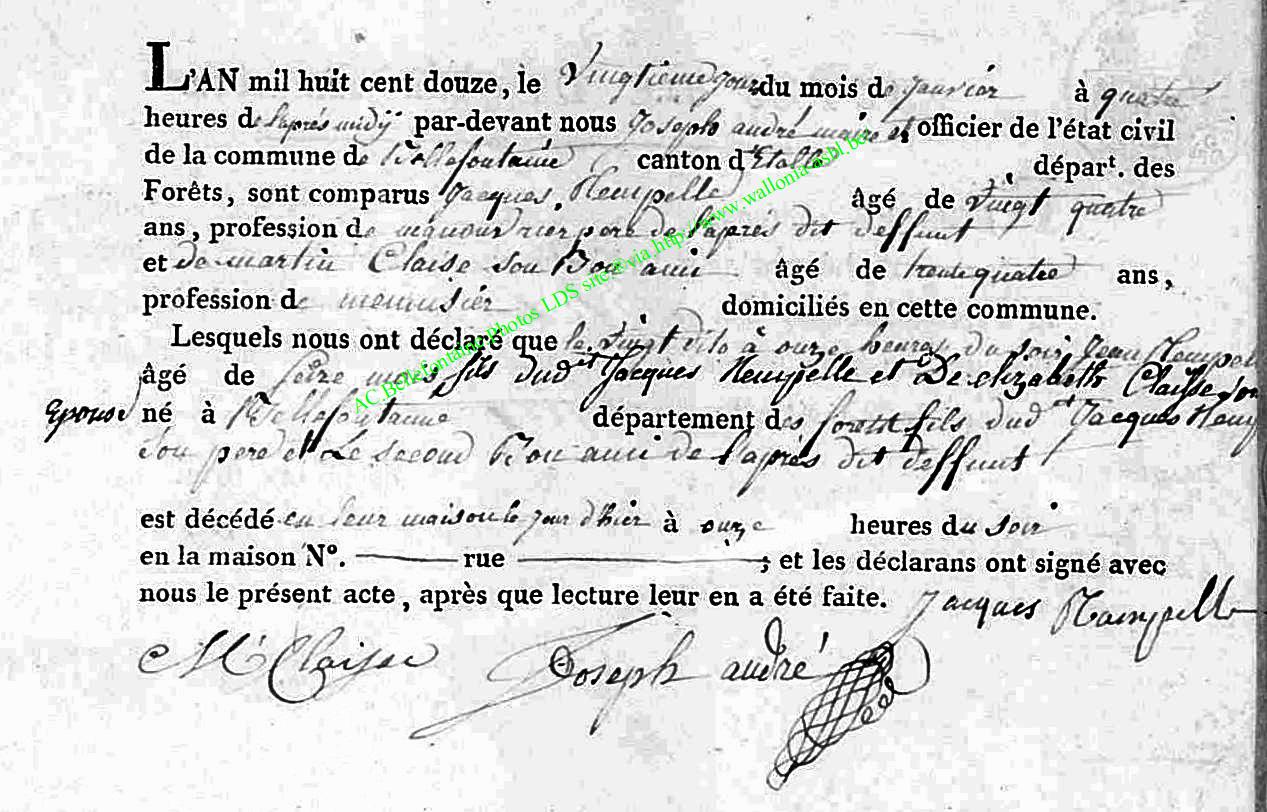 L'AN mil huit cent douze, le Vingtieme jour du mois de janvier à quatre
heures de l'apres midÿ par-devant nous Joseph andré maire et officier de l'état civil
de la commune de Bellefontaine canton d'Etalle départ. des
Forêts, sont comparus Jacques Hempelle âgé de vingt quatre
ans, profession de pere de l'après dit deffunt
et de martin Claise son Bon ami âgé de trente quatre ans,
profession de menuisier domiciliés en cette commune.
Lesquels nous ont déclaré que le à onze heures du soir Jean Hempel
âgé de seize mois fils dudt Jacques Hempelle et De elizabeth Claisse son
Epouse né à Bellefontaine département des forest fils dudt Jacques Hemp
son pere et Le second Bon ami de l'après dit deffunt
est décédé en leur maison le jour d'hier à onze heures du soir
en la maison N°. rue ; et les déclarans ont signé avec
nous le présent acte, après que lecture leur en a été faite. Jacques Hempelle
M Claisse Joseph andré
AC Bellefontaine Photos LDS site@via http://www.wallonia-asbl.be